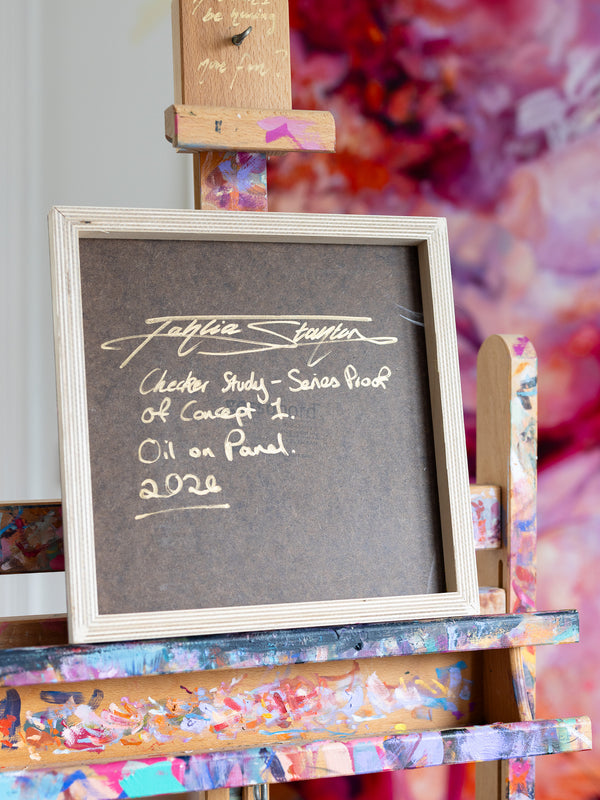 be having
more fun?
Tahlia Stanton
Checker Study - Series Proof
of Concept 1.
Oil on Panel.
2026